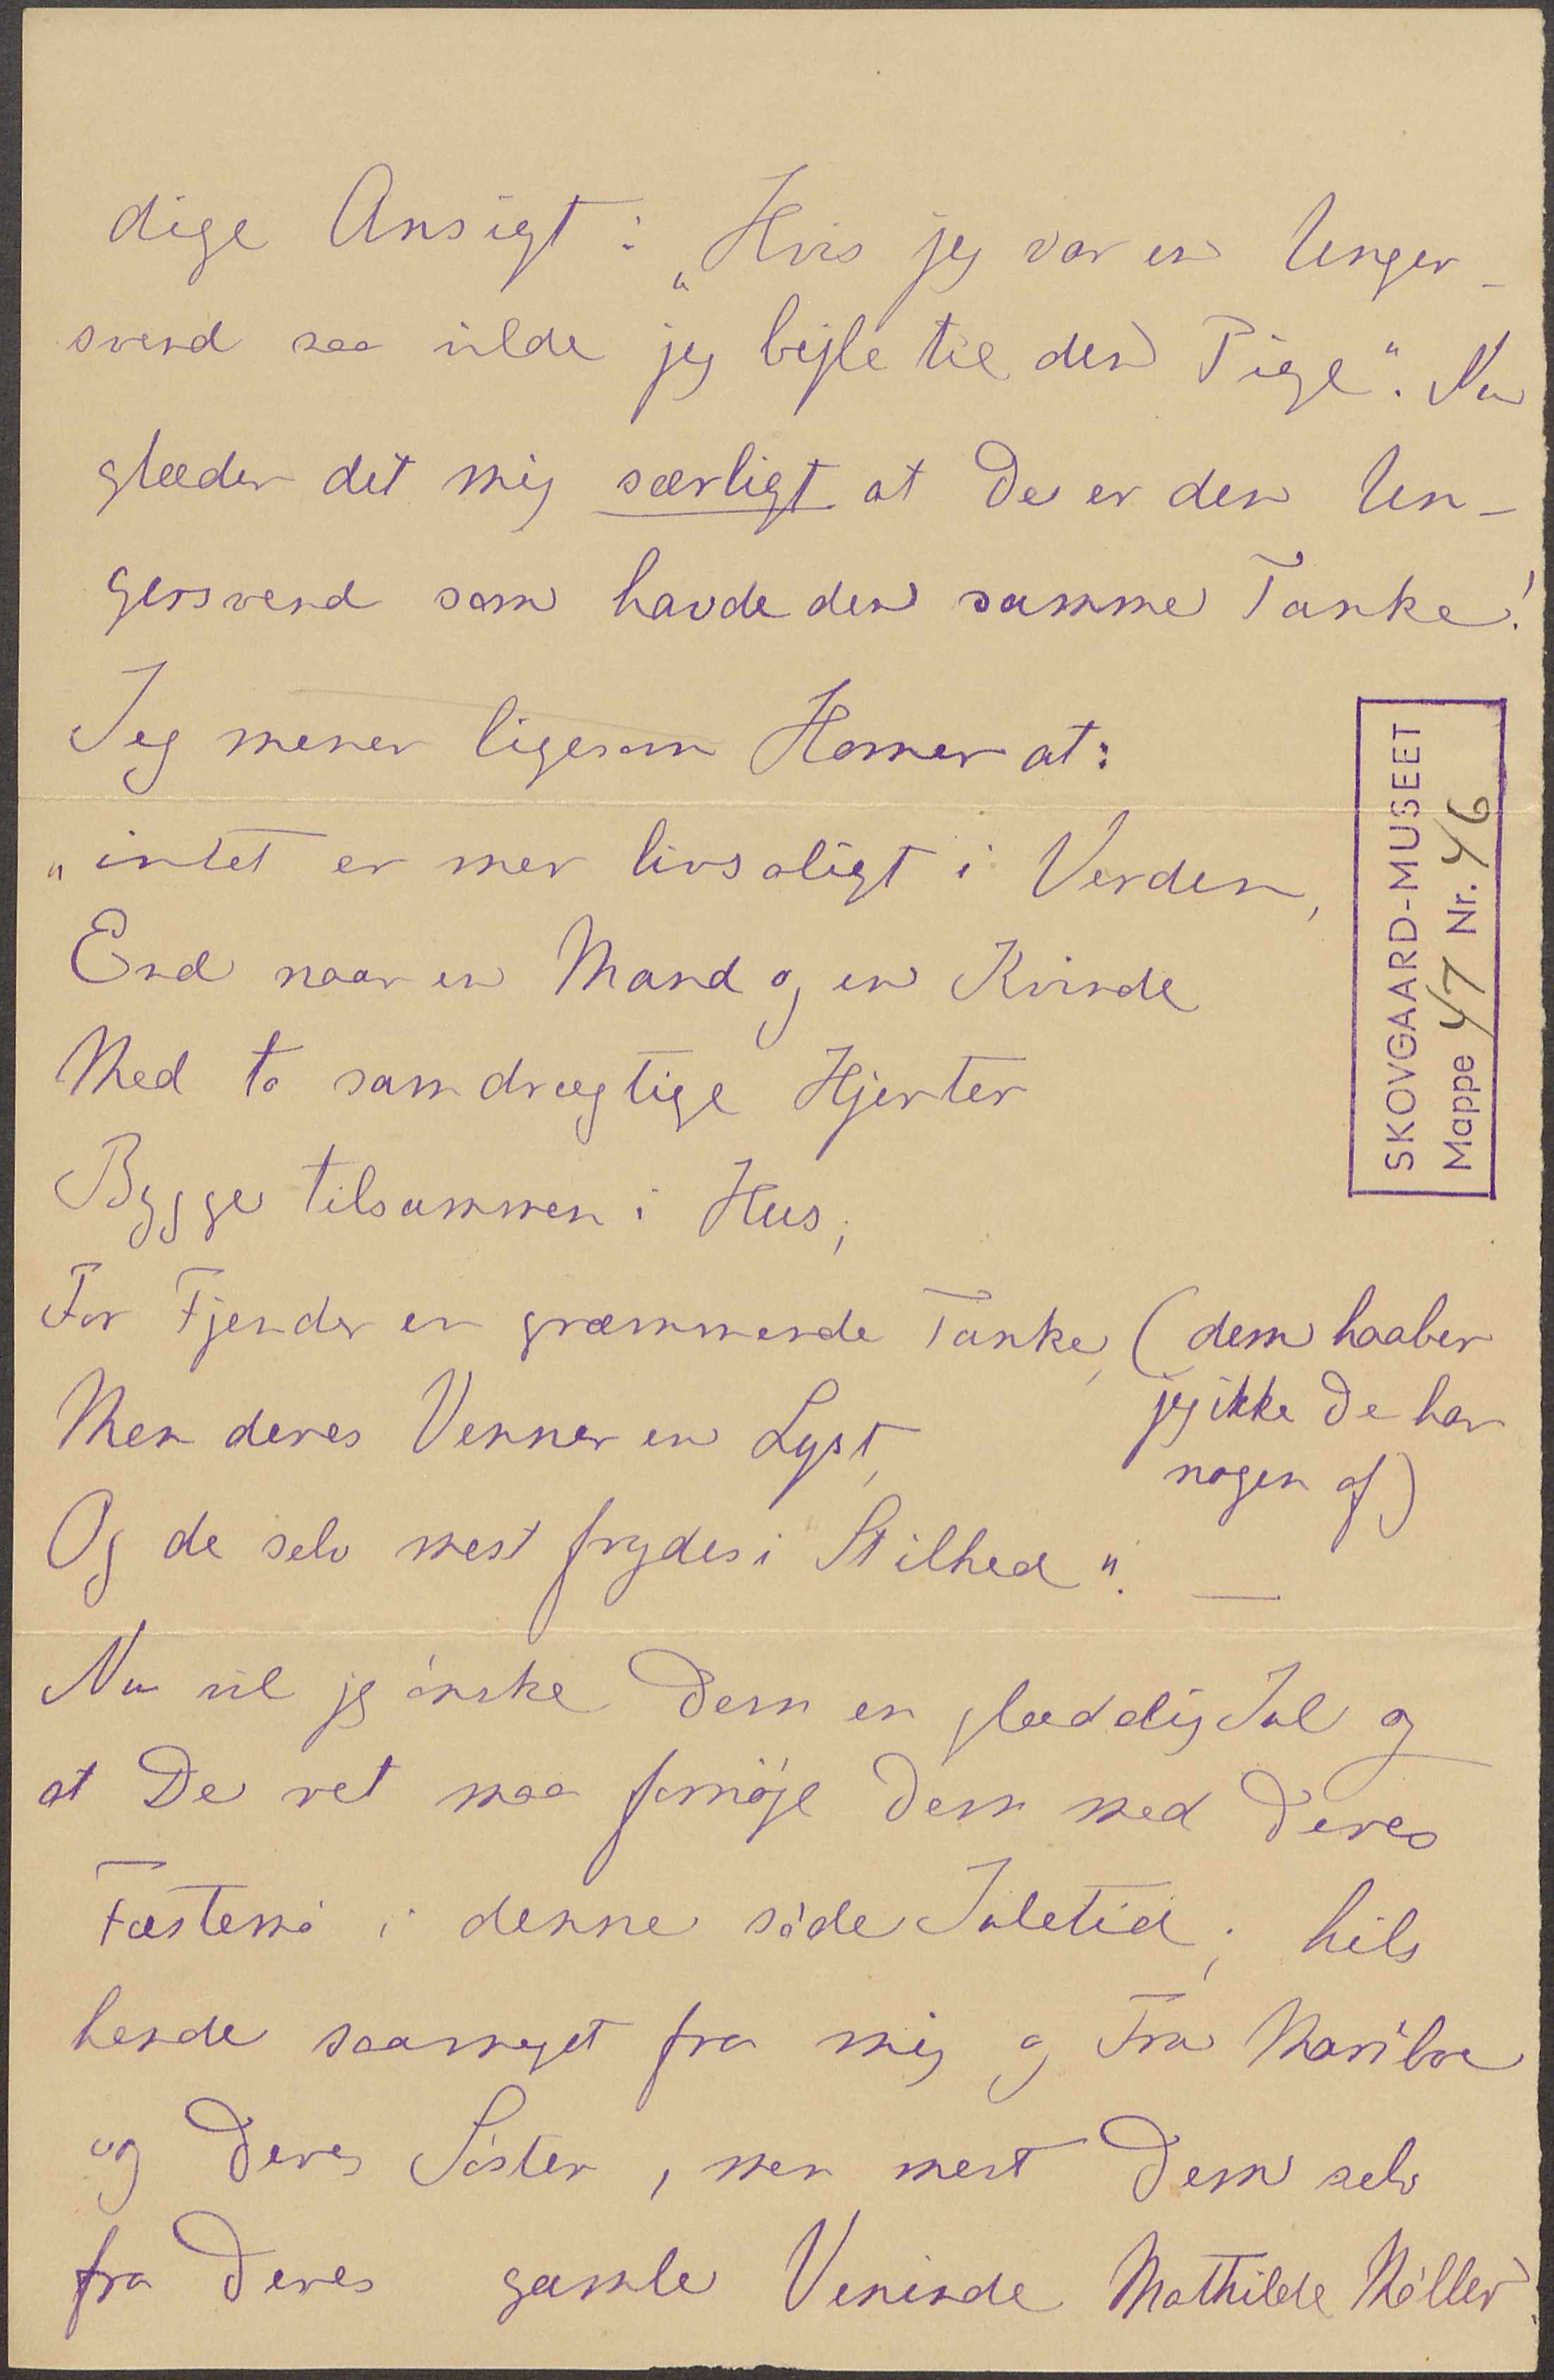 dige Ansigt: „Hvis jeg var en Unger-
svend saa vilde jeg bejle til den Pige“. Nu
glæder det mig særligt at De er den Un-
gersvend som havde den samme Tanke!
Jeg mener ligesom Homer at:
„intet er mer livsaligt i Verden,
End naar en Mand og en Kvinde
Med to samdrægtige Hjerter
Bygge tilsammen i Hus;
For Fjender en græmmende Tanke, (dem haaber
jeg ikke De har
nogen af)
Men deres Venner en Lyst,
Og de selv mest frydes i Stilhed“. —
Nu vil jeg ønske Dem en glædelig Jul og
at De ret maa fornøje Dem med Deres
Fæstemø i denne søde Juletid; hils
hende saameget fra mig og Fru Maribo
og Deres Søster, men mest Dem selv
fra Deres gamle Veninde Mathilde Møller.
SKOVGAARD-MUSEET
Mappe 47 Nr. 46